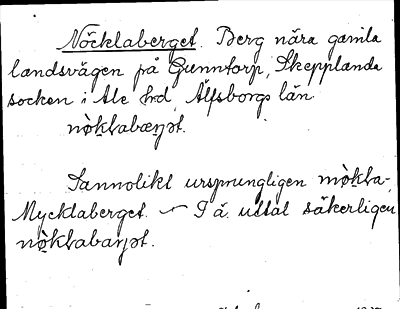 Nöcklaberget. Berg nära gamla
landsvägen på Gunntorp, Skepplanda
socken i Ale hrd, Älfsborgs län.
nòklabærjət.
Sannolikt ursprungligen mòkla-,
Mycklaberget. — I ä. uttal säkerligen
nòklabarjət.